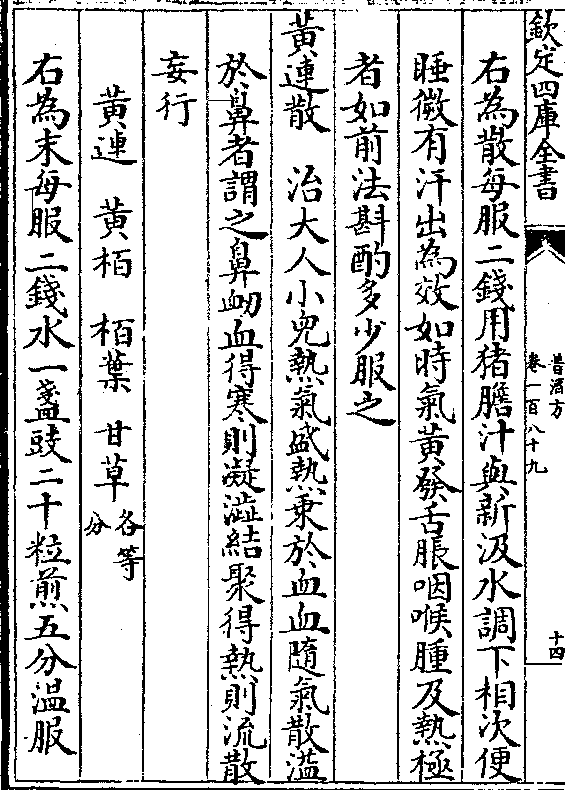 欽定四庫全書
普濟方
卷一百八十九
十四
右為散每服二錢用猪膽汁與新汲水調下相次便
睡㣲有汗出為效如時氣黃發舌脹咽喉腫及熱極
者如前法斟酌多少服之
黃連散 治大人小兒熱氣盛熱乗於血血隨氣散溢
於鼻者謂之鼻衂血得寒則凝澁結聚得熱則流散
妄行
黃連 黃栢 栢葉 甘草各等分
右為末每服二錢水一盞豉二十粒煎五分溫服